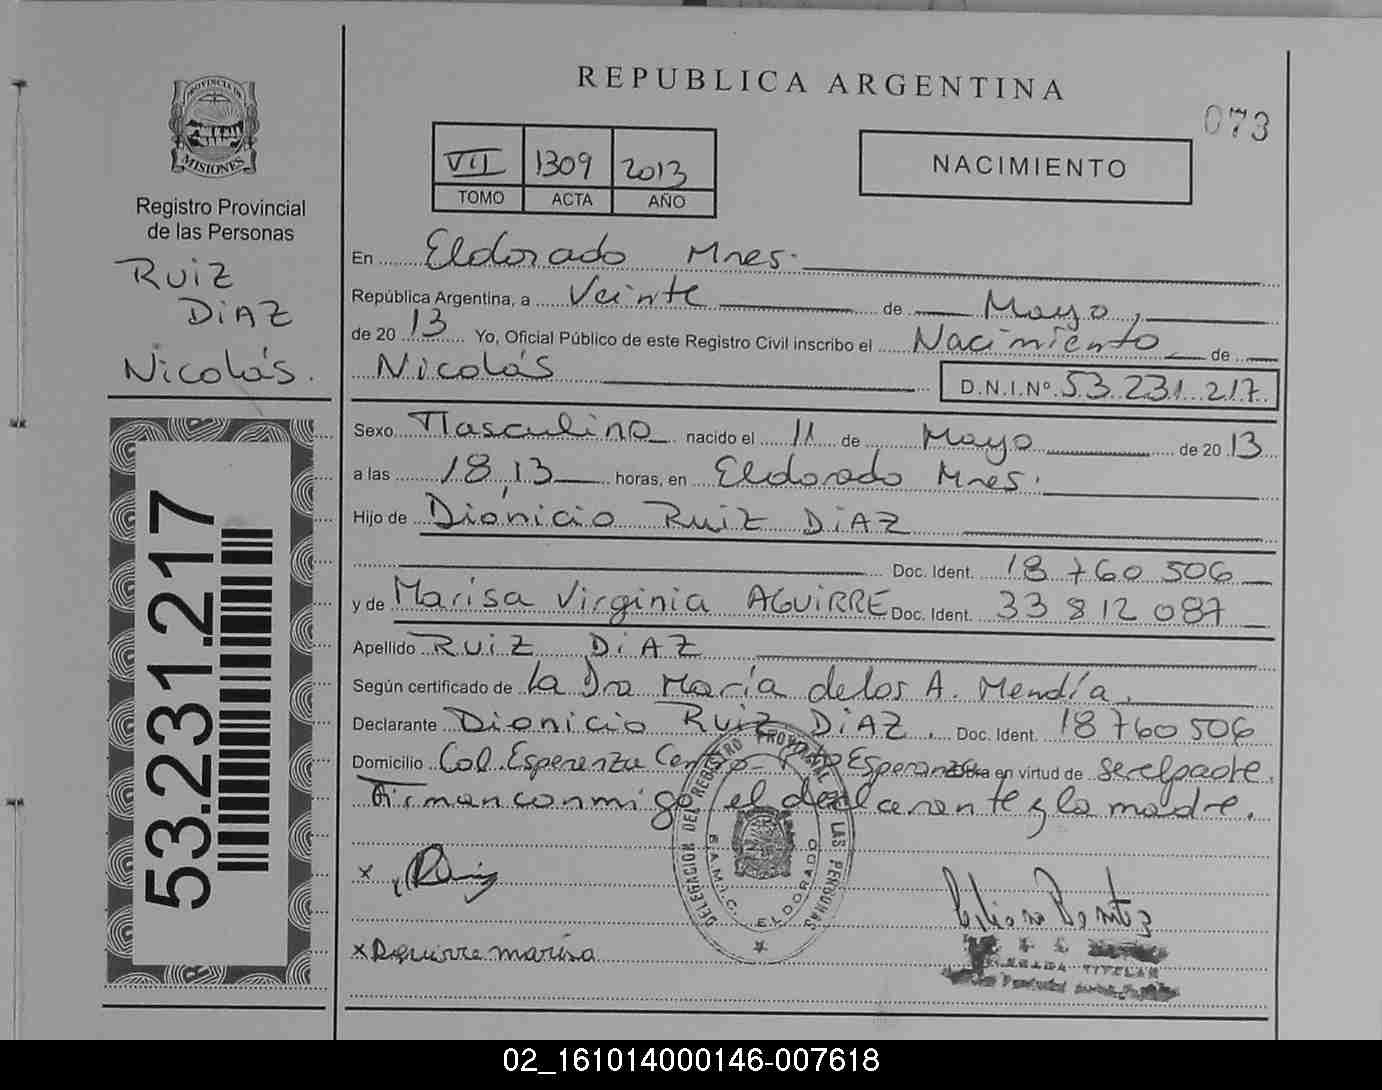 REPUBLICA ARGENTINA
073
PROVINCIA DE
MISIONES
Registro Provincial
de las Personas
RUIZ
DIAZ
Nicolás.
53.231.217
VII 1309 2013
TOMO ACTA AÑO
NACIMIENTO
En Eldorado Mnes.
República Argentina, a Veinte de Mayo,
de 2013 Yo, Oficial Público de este Registro Civil inscribo el Nacimiento de
Nicolás D.N.I.Nº 53.231.217
Sexo Masculino nacido el 11 de Mayo de 2013
a las 18,13 horas, en Eldorado Mnes.
Hijo de Dionicio Ruiz DIAZ
Doc. Ident. 18 760 506
y de Marisa Virginia AGUIRRE Doc. Ident. 33 812 087
Apellido RUIZ DIAZ
Según certificado de La Dra María de los A. Mendía.
Declarante Dionicio Ruiz DIAZ. Doc. Ident. 18 760 506
Domicilio Col. Esperanza Centro - Pto Esperanza en virtud de ser el padre.
Firman conmigo el declarante y la madre.
DELEGACION DEL REGISTRO PROVINCIAL DE LAS PERSONAS
ELDORADO
x Ruiz
x Aguirre marisa
TITULAR
02_161014000146-007618